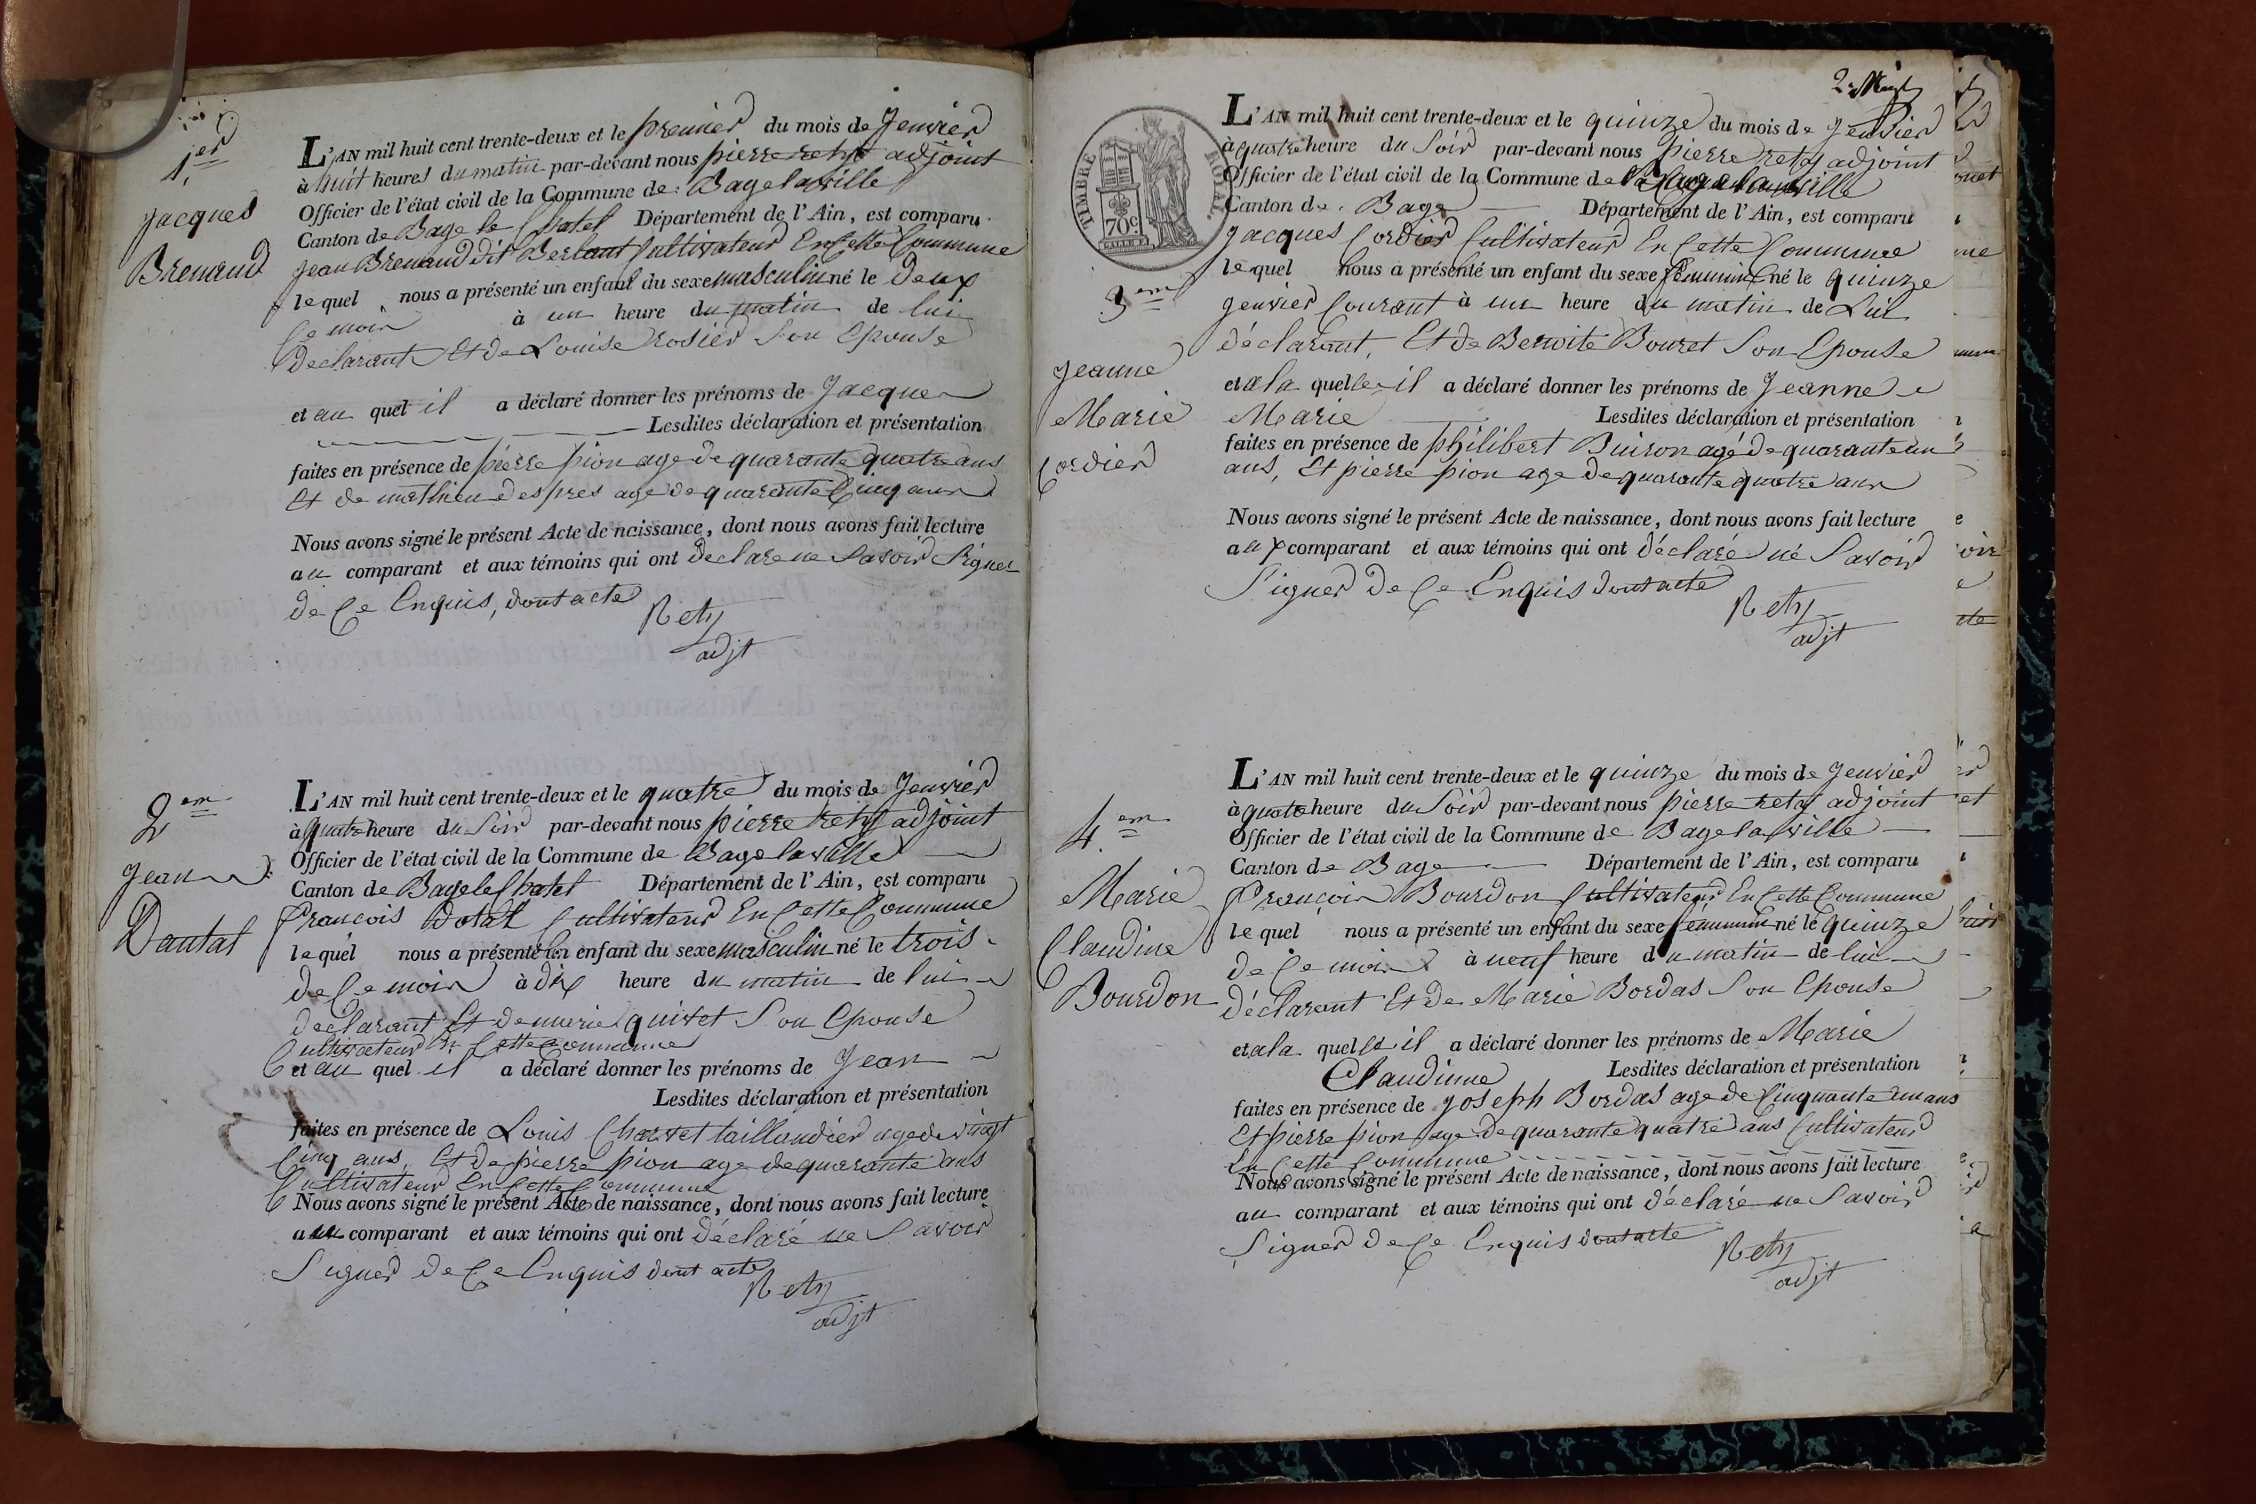 1.er
Jacques
Brenaud
L'AN mil huit cent trente-deux et le premier du mois de Jenvier
à huit heures du matin par-devant nous pierre rety adjoint
Officier de l'état civil de la Commune de Bage la ville
Canton de Bage le Chatel Département de l'Ain, est comparu
Jean Brenaud dit Berlant Cultivateur En Cette Commune
lequel nous a présenté un enfant du sexe masculin né le deux
Ce mois à un heure du matin de lui
Declarant Et de Louise rosier Son Epouse
et au quel il a déclaré donner les prénoms de Jacques
Lesdites déclaration et présentation
faites en présence de pierre pion age de quarante quatre ans
Et de mathieu despres age de quarante Cinq ans
Nous avons signé le présent Acte de naissance, dont nous avons fait lecture
au comparant et aux témoins qui ont declare ne Savoir Signer
de Ce Enquis, dont acte
Rety
adjt
2em
Jean
Dautat
L'AN mil huit cent trente-deux et le quatre du mois de Jenvier
à quatre heure du Soir par-devant nous pierre rety adjoint
Officier de l'état civil de la Commune de Bage la ville
Canton de Bage le Chatel Département de l'Ain, est comparu
François Dotat Cultivateur En Cette Commune
lequel nous a présenté un enfant du sexe masculin né le trois
de Ce mois à dix heure du matin de lui
déclarant Et de marie quivet Son Epouse
Cultivateur En Cette Commune
et au quel il a déclaré donner les prénoms de Jean
Lesdites déclaration et présentation
faites en présence de Louis Charvet taillandier age de vingt
Cinq ans, Et de pierre pion age de quarante ans
Cultivateur En Cette Commune
Nous avons signé le présent Acte de naissance, dont nous avons fait lecture
au comparant et aux témoins qui ont déclaré ne Savoir
Signer de Ce Enquis dont acte
Rety
adjt
2
TIMBRE ROYAL
70c.
3em
Jeanne
Marie
Cordier
L'AN mil huit cent trente-deux et le quinze du mois de Jenvier
à quatre heure du Soir par-devant nous pierre rety adjoint
Officier de l'état civil de la Commune de Bage la ville
Canton de Bage Département de l'Ain, est comparu
Jacques Cordier Cultivateur En Cette Commune
lequel nous a présenté un enfant du sexe féminin né le quinze
Jenvier Courant à un heure du matin de Lui
déclarant, Et de Benoite Bouret Son Epouse
et a la quelle il a déclaré donner les prénoms de Jeanne
Marie Lesdites déclaration et présentation
faites en présence de philibert Buiron agé de quarante un
ans, Et pierre pion age de quarante quatre ans
Nous avons signé le présent Acte de naissance, dont nous avons fait lecture
aux comparant et aux témoins qui ont déclaré né Savoir
Signer de Ce Enquis dont acte
Rety
adjt
4.em
Marie
Claudine
Bourdon
L'AN mil huit cent trente-deux et le quinze du mois de Jenvier
à quatre heure du Soir par-devant nous pierre rety adjoint
Officier de l'état civil de la Commune de Bage la ville
Canton de Bage Département de l'Ain, est comparu
François Bourdon Cultivateur En Cette Commune
lequel nous a présenté un enfant du sexe féminin né le quinze
de Ce mois à neuf heure du matin de lui
déclarant Et de Marie Bordas Son Epouse
et a la quelle il a déclaré donner les prénoms de Marie
Claudinne Lesdites déclaration et présentation
faites en présence de Joseph Bordas age de Cinquante un ans
Et pierre pion age de quarante quatre ans Cultivateur
En Cette Commune
Nous avons signé le présent Acte de naissance, dont nous avons fait lecture
au comparant et aux témoins qui ont déclaré ne Savoir
Signer de Ce Enquis dont acte
Rety
adjt